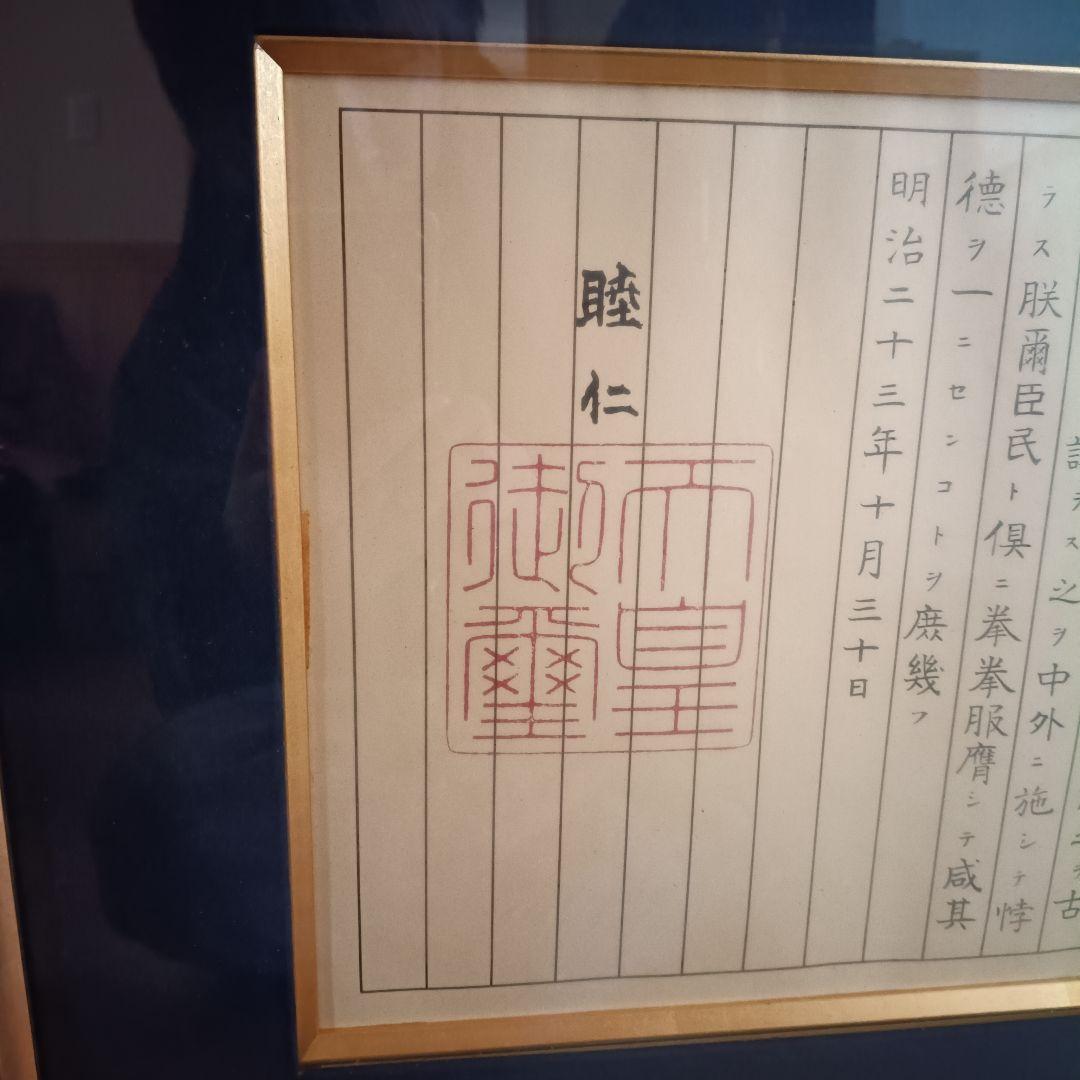 古
ラス之ヲ中外ニ施シテ悖
ラス朕爾臣民ト倶ニ拳拳服膺シテ咸其
徳ヲ一ニセンコトヲ庶幾フ
明治二十三年十月三十日
睦仁
天皇
御璽